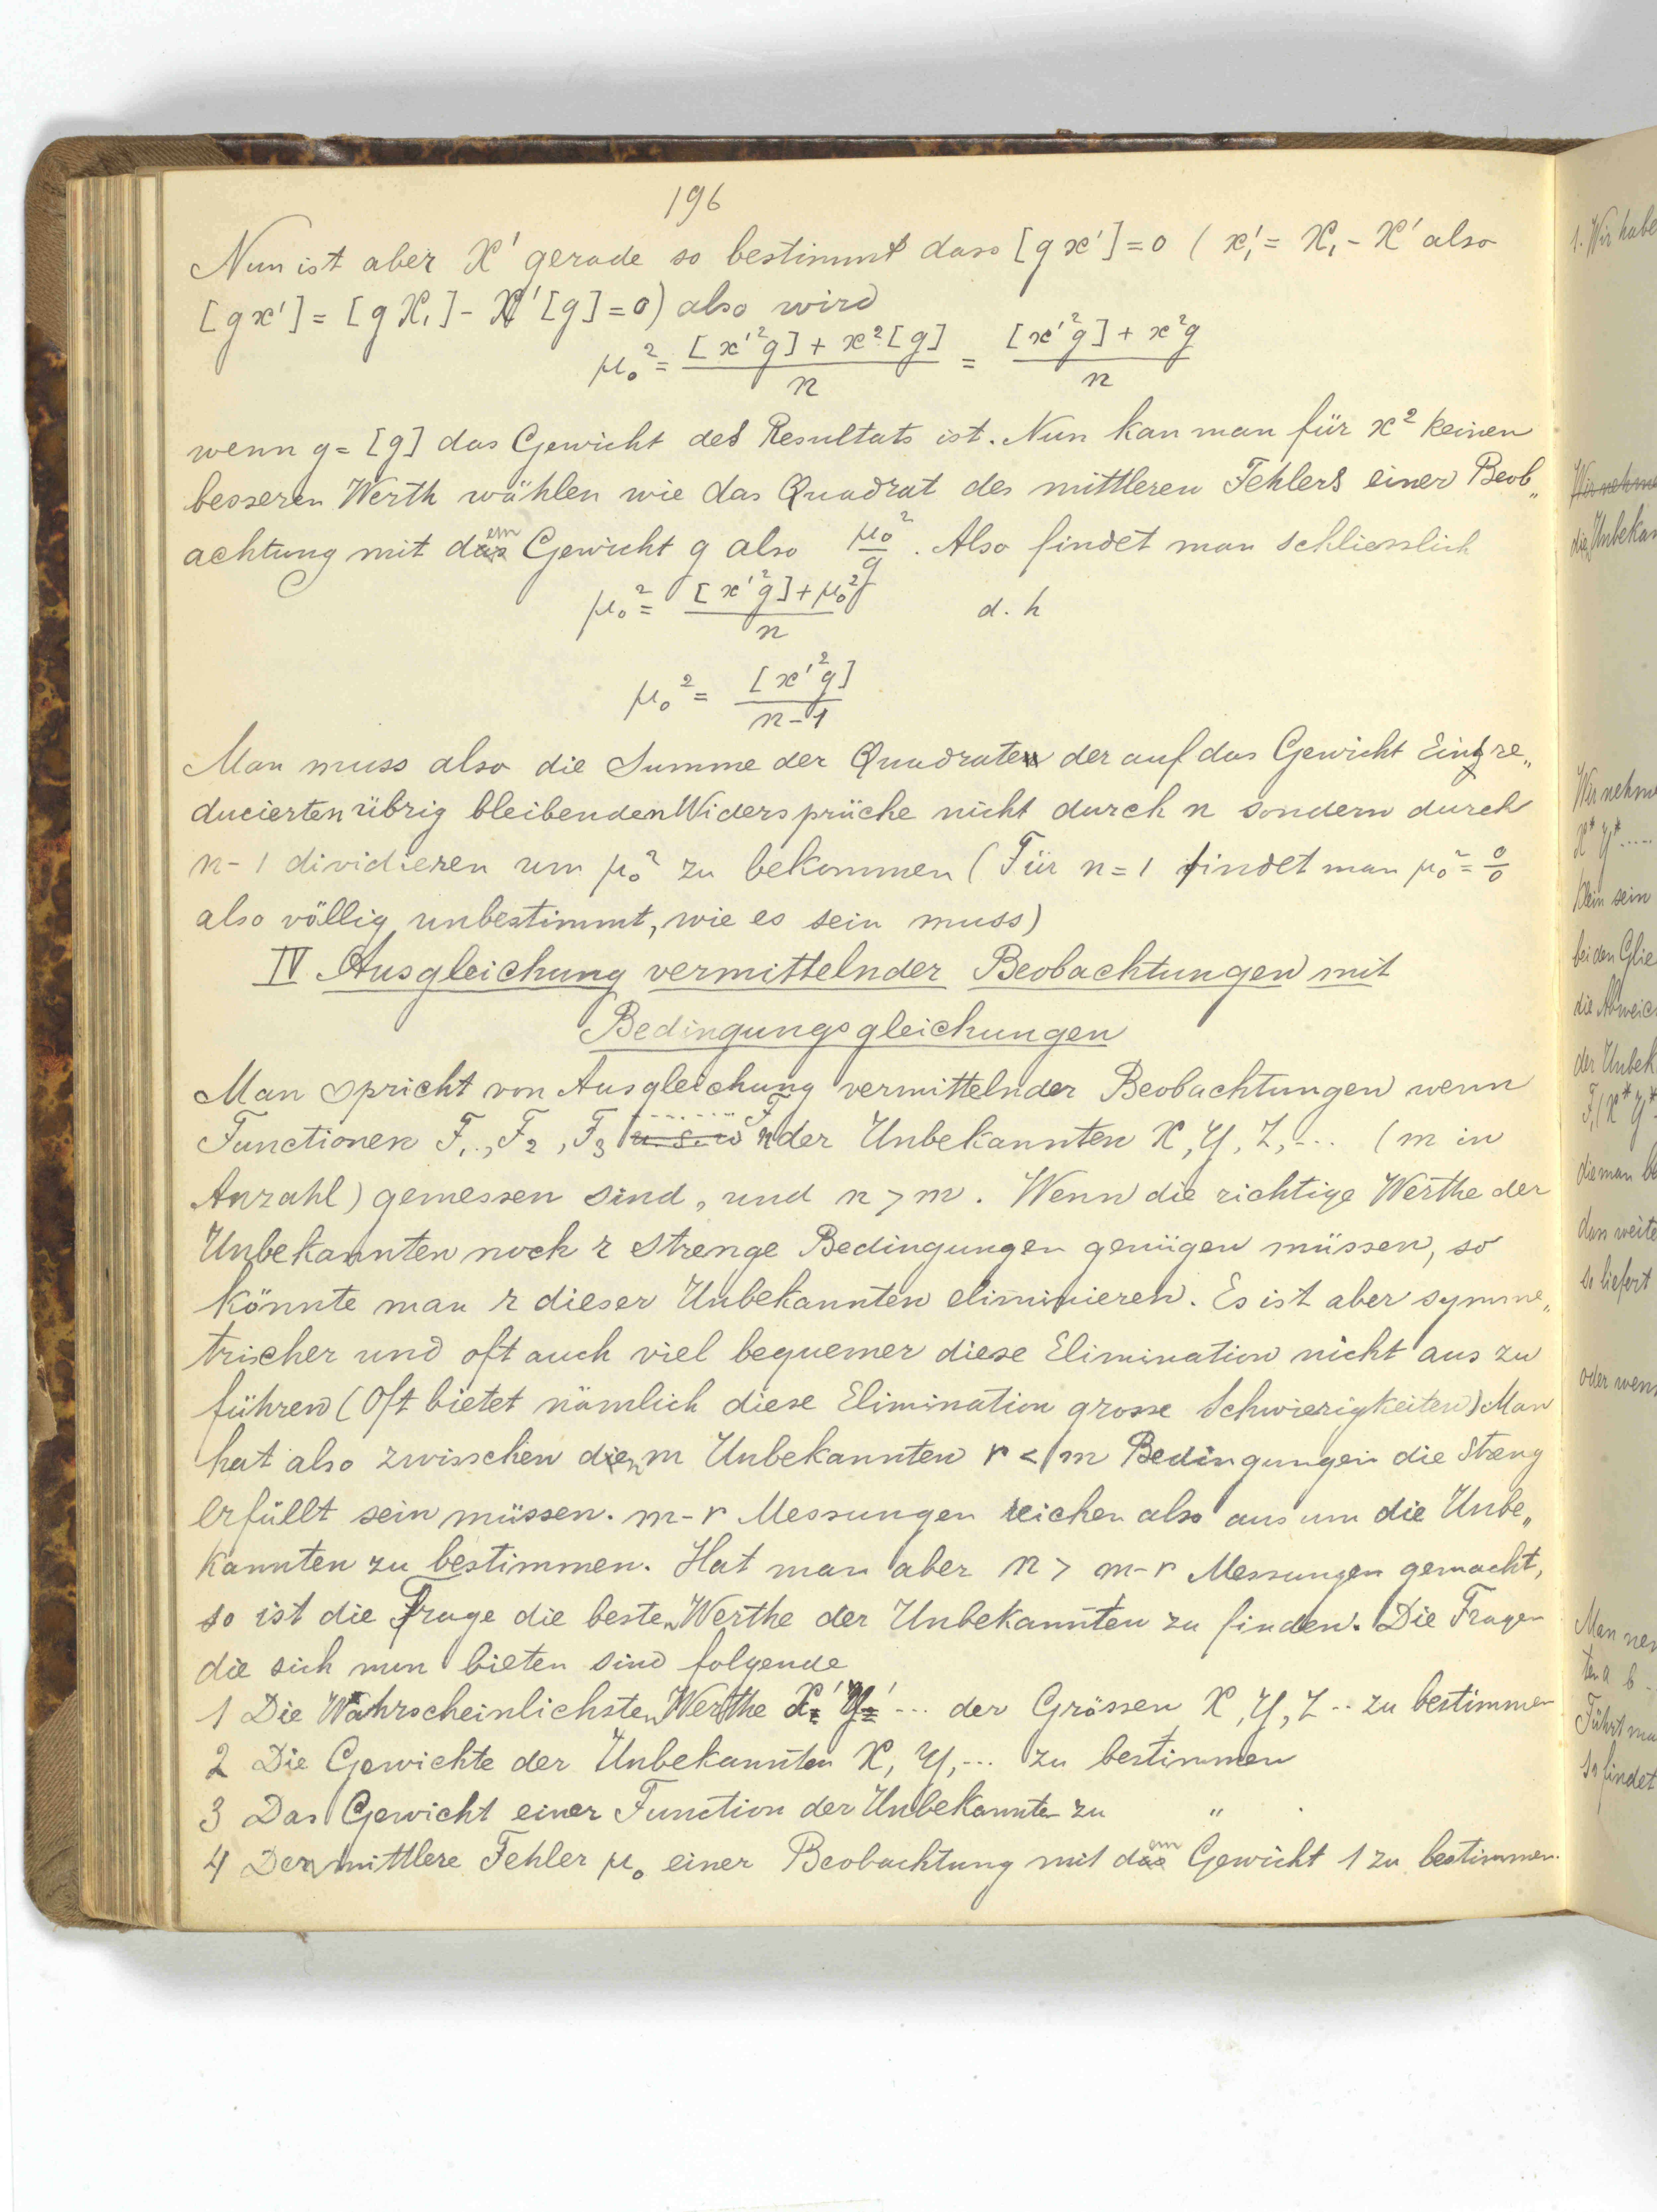 196
Nun ist aber X' gerade so bestimmt dass [g x'] = 0 ( x₁' = X₁ - X' also
[g x'] = [g X₁] - X' [g] = 0) also wird
μ₀² = ([x'²g] + x²[g]) / n = ([x'²g] + x²g) / n
wenn g = [g] das Gewicht des Resultats ist. Nun kan man für x² keinen
besseren Werth wählen wie das Quadrat des mittleren Fehlers einer Beob„
achtung mit dem Gewicht g also μ₀²/g. Also findet man schliesslich
μ₀² = ([x'²g] + μ₀²) / n d. h
μ₀² = [x'²g] / (n-1)
Man muss also die Summe der Quadrate der auf das Gewicht Eins re„
ducierten übrig bleibenden Widersprüche nicht durch n sondern durch
n-1 dividieren um μ₀² zu bekommen (Für n = 1 findet man μ₀² = 0/0
also völlig unbestimmt, wie es sein muss)
IV Ausgleichung vermittelnder Beobachtungen mit
Bedingungsgleichungen
Man spricht von Ausgleichung vermittelnder Beobachtungen wenn
Functionen F₁, F₂, F₃ ...... Fn der Unbekannten X, Y, Z, ... (m in
Anzahl) gemessen sind, und n > m. Wenn die richtige Werthe der
Unbekannten noch r strenge Bedingungen genügen müssen, so
könnte man r dieser Unbekannten eliminieren. Es ist aber symme„
trischer und oft auch viel bequemer diese Elimination nicht aus zu
führen (Oft bietet nämlich diese Elimination grosse Schwierigkeiten) Man
hat also zwisschen den m Unbekannten r < m Bedingungen die Streng
erfüllt sein müssen. m-r Messungen reichen also aus um die Unbe„
kannten zu bestimmen. Hat man aber n > m-r Messungen gemacht,
so ist die Frage die besten Werthe der Unbekannten zu finden. Die Fragen
die sich nun bieten sind folgende
1 Die Wahrscheinlichsten Werthe X' Y' ... der Grössen X, Y, Z .. zu bestimmen
2 Die Gewichte der Unbekannten X, Y, ... zu bestimmen
3 Das Gewicht einer Function der Unbekannte zu "
4 Den mittlere Fehler μ₀ einer Beobachtung mit dem Gewicht 1 zu bestimmen.
1. Wir habe
Wir nehme
die Unbekan
Wir nehme
X* Y* ....
klein sein
bei den Glie
die Abweic
der Unbek
F₁(X* Y*
die man be
dan weite
so liefert
oder wen
Man nen
ten a b
Führt ma
so findet